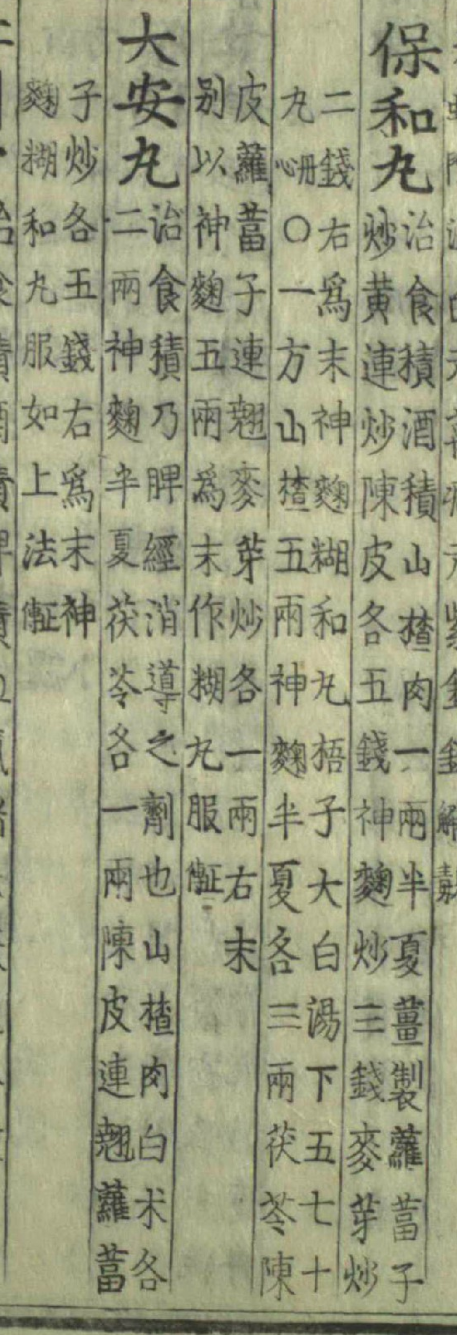 保和丸
治食積酒積山楂肉一兩半夏薑製蘿葍子
炒黃連炒陳皮各五錢神麴炒三錢麥芽炒
二錢右爲末神麴糊和丸梧子大白湯下五七十
丸丹心○一方山楂五兩神麴半夏各三兩茯苓陳
皮蘿葍子連翹麥芽炒各一兩右末
别以神麴五兩爲末作糊丸服正傳
大安丸
治食積乃脾經消導之劑也山楂肉白朮各
二兩神麴半夏茯苓各一兩陳皮連翹蘿葍
子炒各五錢右爲末神
麴糊和丸服如上法正傳